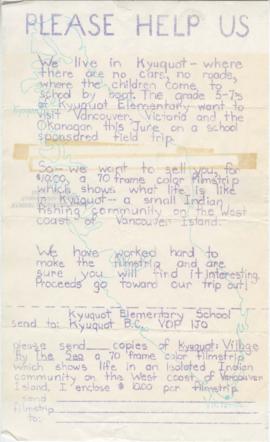 PLEASE HELP US
We live in Kyuquot - where
there are no cars, no roads,
where the children come to
school by boat. The grade 5-7s
at Kyuquot Elementary want to
visit Vancouver, Victoria and the
Okanagan this June on a school
sponsored field trip.
So - we want to sell you, for
$10.00, a 70 frame color filmstrip
which shows what life is like
in Kyuquot - a small Indian
fishing community on the West
coast of Vancouver Island.
We have worked hard to
make the filmstrip and are
sure you will find it interesting.
Proceeds go toward our trip out!
Kyuquot Elementary School
send to: Kyuquot B.C. V0P 1J0
please send copies of Kyuquot: Village
By The Sea a 70 frame color filmstrip
which shows life in an isolated Indian
community on the West coast of Vancouver
Island, I enclose $ 10.00 per filmstrip
send
filmstrip
to: